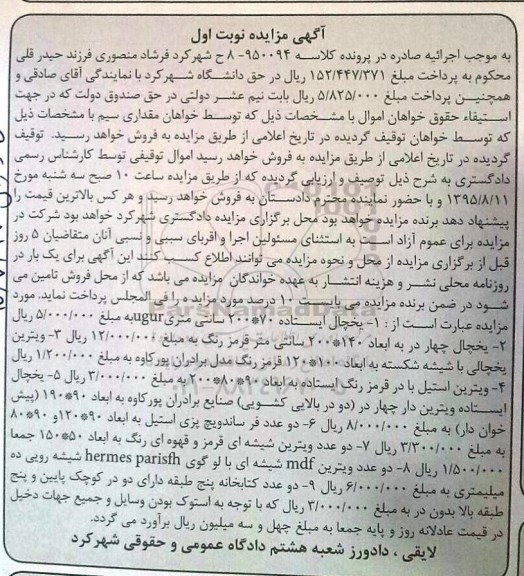 آگهی مزایده نوبت اول
به موجب اجرائیه صادره در پرونده کلاسه ۹۵۰۰۹۴- ۸ ح شهرکرد فرشاد منصوری فرزند حیدر قلی
محکوم به پرداخت مبلغ ۱۵۲/۴۴۷/۳۷۱ ریال در حق دانشگاه شهرکرد با نمایندگی آقای صادقی و
همچنین پرداخت مبلغ ۵/۸۲۵/۰۰۰ ریال بابت نیم عشر دولتی در حق صندوق دولت که در جهت
استیفاء حقوق خواهان اموال با مشخصات ذیل که توسط خواهان مقداری سیم با مشخصات ذیل
که توسط خواهان توقیف گردیده در تاریخ اعلامی از طریق مزایده به فروش خواهد رسید. توقیف
گردیده در تاریخ اعلامی از طریق مزایده به فروش خواهد رسید اموال توقیفی توسط کارشناس رسمی
دادگستری به شرح ذیل توصیف و ارزیابی گردیده که از طریق مزایده ساعت ۱۰ صبح سه شنبه مورخ
۱۳۹۵/۸/۱۱ و با حضور نماینده محترم دادستان به فروش خواهد رسید و هر کس بالاترین قیمت را
پیشنهاد دهد برنده مزایده خواهد بود محل برگزاری مزایده دادگستری شهرکرد خواهد بود شرکت در
مزایده برای عموم آزاد است به استثنای مسئولین اجرا و اقربای سببی و نسبی آنان متقاضیان ۵ روز
قبل از برگزاری مزایده از محل و نحوه مزایده می توانند اطلاع کسب کنند این آگهی برای یک بار در
روزنامه محلی نشر و هزینه انتشار به عهده خواندگان مزایده می باشد که از محل فروش تامین می
شود در ضمن برنده مزایده می بایست ۱۰ درصد مورد مزایده را فی المجلس پرداخت نماید. مورد
مزایده عبارت است از : ۱- یخچال ایستاده ۷۰*۲۰۰ سانتی متری ugur به مبلغ ۵/۰۰۰/۰۰۰ ریال
۲- یخچال چهار در به ابعاد ۱۴۰*۲۰۰ سانتی متر قرمز رنگ به مبلغ ۱۲/۰۰۰/۰۰۰ ریال ۳- ویترین
یخچالی با شیشه شکسته به ابعاد ۱۰۰*۱۲۰ قرمز رنگ مدل برادران پور کاوه به مبلغ ۱/۲۰۰/۰۰۰ ریال
۴- ویترین استیل با در قرمز رنگ ایستاده به ابعاد ۹۰*۸۰*۲۰۰ به مبلغ ۳/۰۰۰/۰۰۰ ریال ۵- یخچال
ایستاده ویترین دار چهار در (دو در بالایی کشویی) صنایع برادران پورکاوه به ابعاد ۹۰*۱۹۰ (پیش
خوان دار) به مبلغ ۸/۰۰۰/۰۰۰ ریال ۶- دو عدد فر ساندویچ پزی استیل به ابعاد ۹۰*۱۲۰ و ۹۰*۸۰
به مبلغ ۳/۳۰۰/۰۰۰ ریال ۷- دو عدد ویترین شیشه ای قرمز و قهوه ای رنگ به ابعاد ۵۰*۱۵۰ جمعا
۱/۵۰۰/۰۰۰ ریال ۸- دو عدد ویترین mdf شیشه ای با لو گوی hermes parisfh شیشه رویی ده
میلیمتری به مبلغ ۶/۰۰۰/۰۰۰ ریال ۹- دو عدد کتابخانه پنج طبقه دارای دو در کوچک پایین و پنج
طبقه بالا بدون در به مبلغ ۳/۰۰۰/۰۰۰ ریال که با توجه به استوک بودن وسایل و جمیع جهات دخیل
در قیمت عادلانه روز و پایه جمعا به مبلغ چهل و سه میلیون ریال برآورد می گردد.
لایقی ، دادورز شعبه هشتم دادگاه عمومی و حقوقی شهرکرد